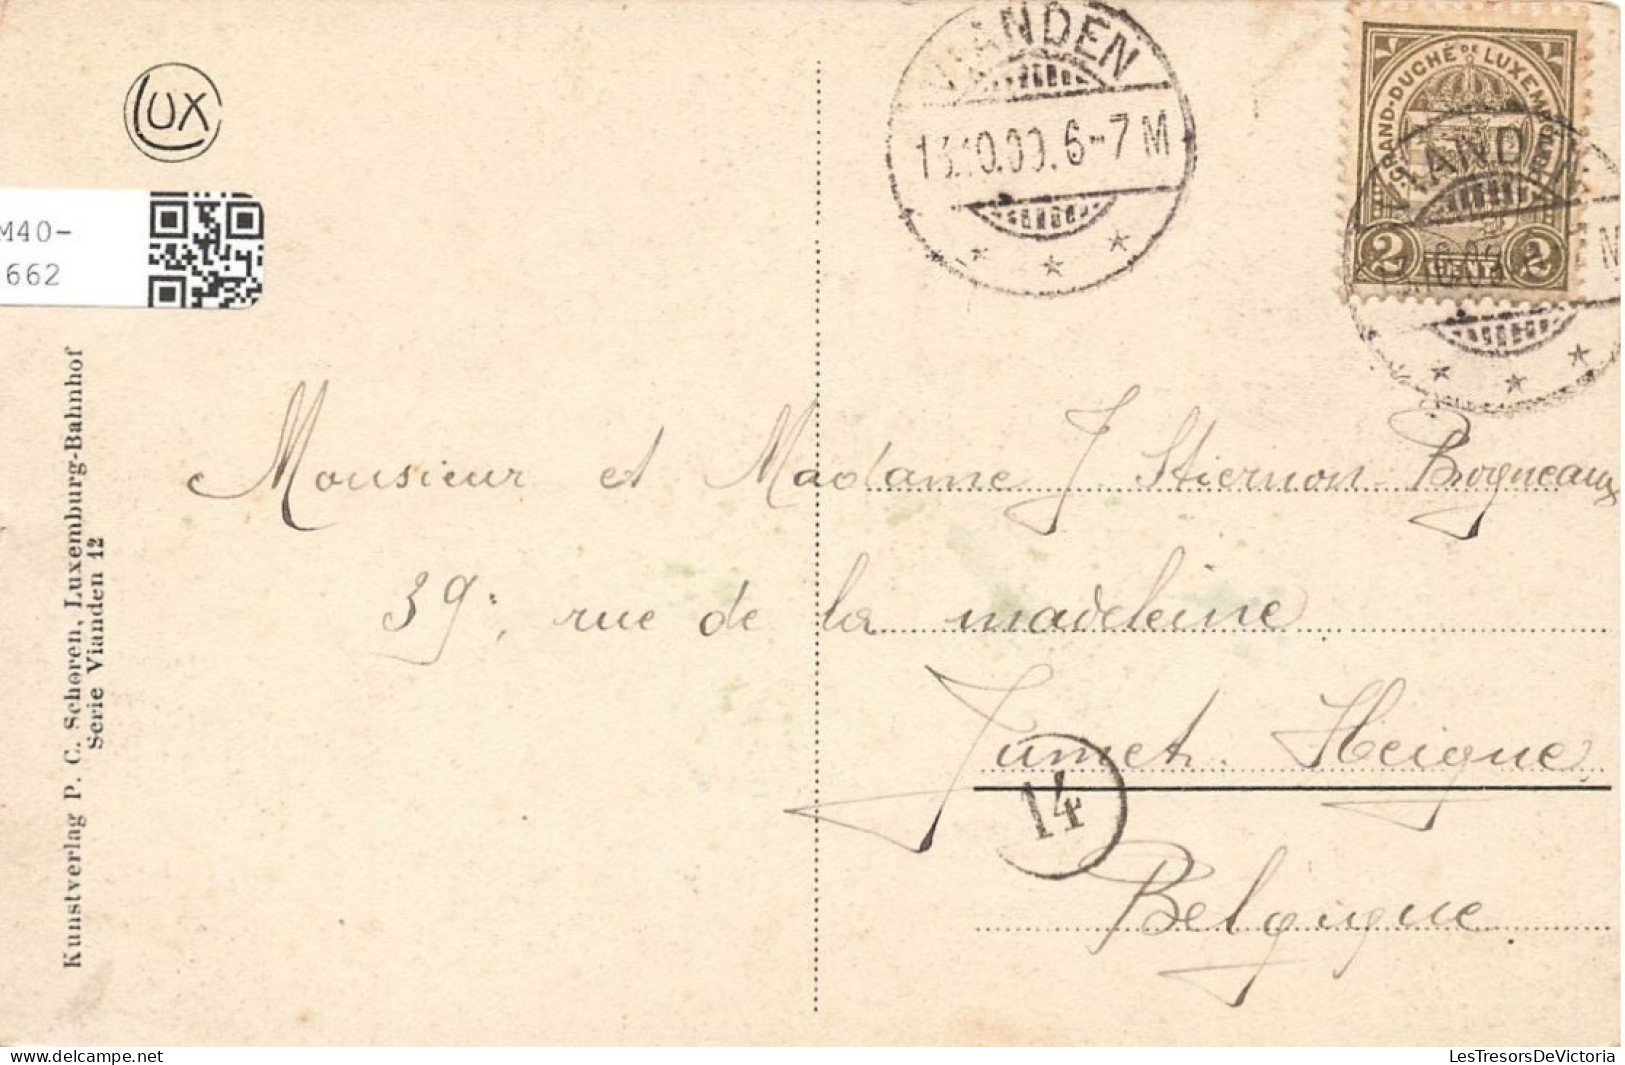 LUX
M40-
662
Kunstverlag P. C. Schoren, Luxemburg-Bahnhof
Serie Vianden 12
VIANDEN
13.10.09. 6-7 M
GRAND-DUCHÉ DE LUXEMBOURG
2 2
VIANDEN
Monsieur et Madame J Stiernon-Borgneaux
39, rue de la madeleine
Jumet. Heigne,
14
Belgique.
LesTresorsDeVictoria
delcampe.net